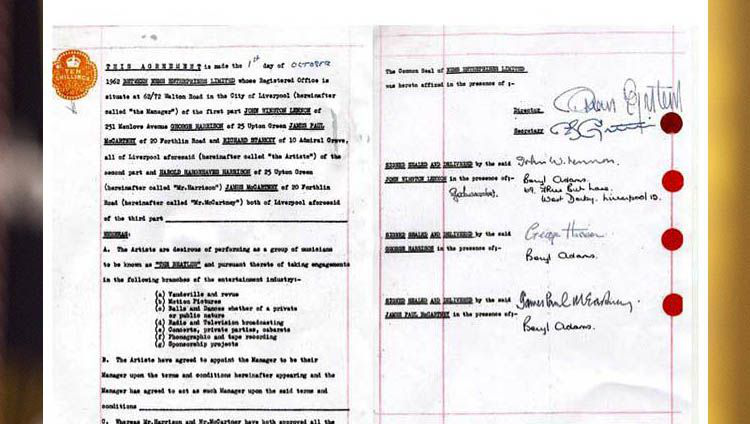 TEN
SHILLINGS
THIS AGREEMENT is made the 1st day of OCTOBER
1962 BETWEEN NEMS ENTERPRISES LIMITED whose Registered Office is
situate at 62/72 Walton Road in the City of Liverpool (hereinafter
called "the Manager") of the first part JOHN WINSTON LENNON of
251 Menlove Avenue GEORGE HARRISON of 25 Upton Green JAMES PAUL
McCARTNEY of 20 Forthlin Road and RICHARD STARKEY of 10 Admiral Grove,
all of Liverpool aforesaid (hereinafter called "the Artists") of the
second part and HAROLD HARGREAVES HARRISON of 25 Upton Green
(hereinafter called "Mr.Harrison") JAMES McCARTNEY of 20 Forthlin
Road (hereinafter called "Mr.McCartney") both of Liverpool aforesaid
of the third part
WHEREAS:
A. The Artists are desirous of performing as a group of musicians
to be known as "THE BEATLES" and pursuant thereto of taking engagements
in the following branches of the entertainment industry:-
(a) Vaudeville and revue
(b) Motion Pictures
(c) Balls and Dances whether of a private
or public nature
(d) Radio and Television broadcasting
(e) Concerts, private parties, cabarets
(f) Phonographic and tape recording
(g) Sponsorship projects
B. The Artists have agreed to appoint the Manager to be their
Manager upon the terms and conditions hereinafter appearing and the
Manager has agreed to act as such Manager upon the said terms and
conditions
C. Whereas Mr.Harrison and Mr.McCartney have both approved all the
The Common Seal of NEMS ENTERPRISES LIMITED
was hereto affixed in the presence of :-
Director
Secretary
SIGNED SEALED AND DELIVERED by the said
JOHN WINSTON LENNON in the presence of:-
John W. Lennon
Beryl Adams.
West Derby, Liverpool 12.
SIGNED SEALED AND DELIVERED by the said
GEORGE HARRISON in the presence of:-
George Harrison
Beryl Adams.
SIGNED SEALED AND DELIVERED by the said
JAMES PAUL McCARTNEY in the presence of:-
James Paul McCartney
Beryl Adams.